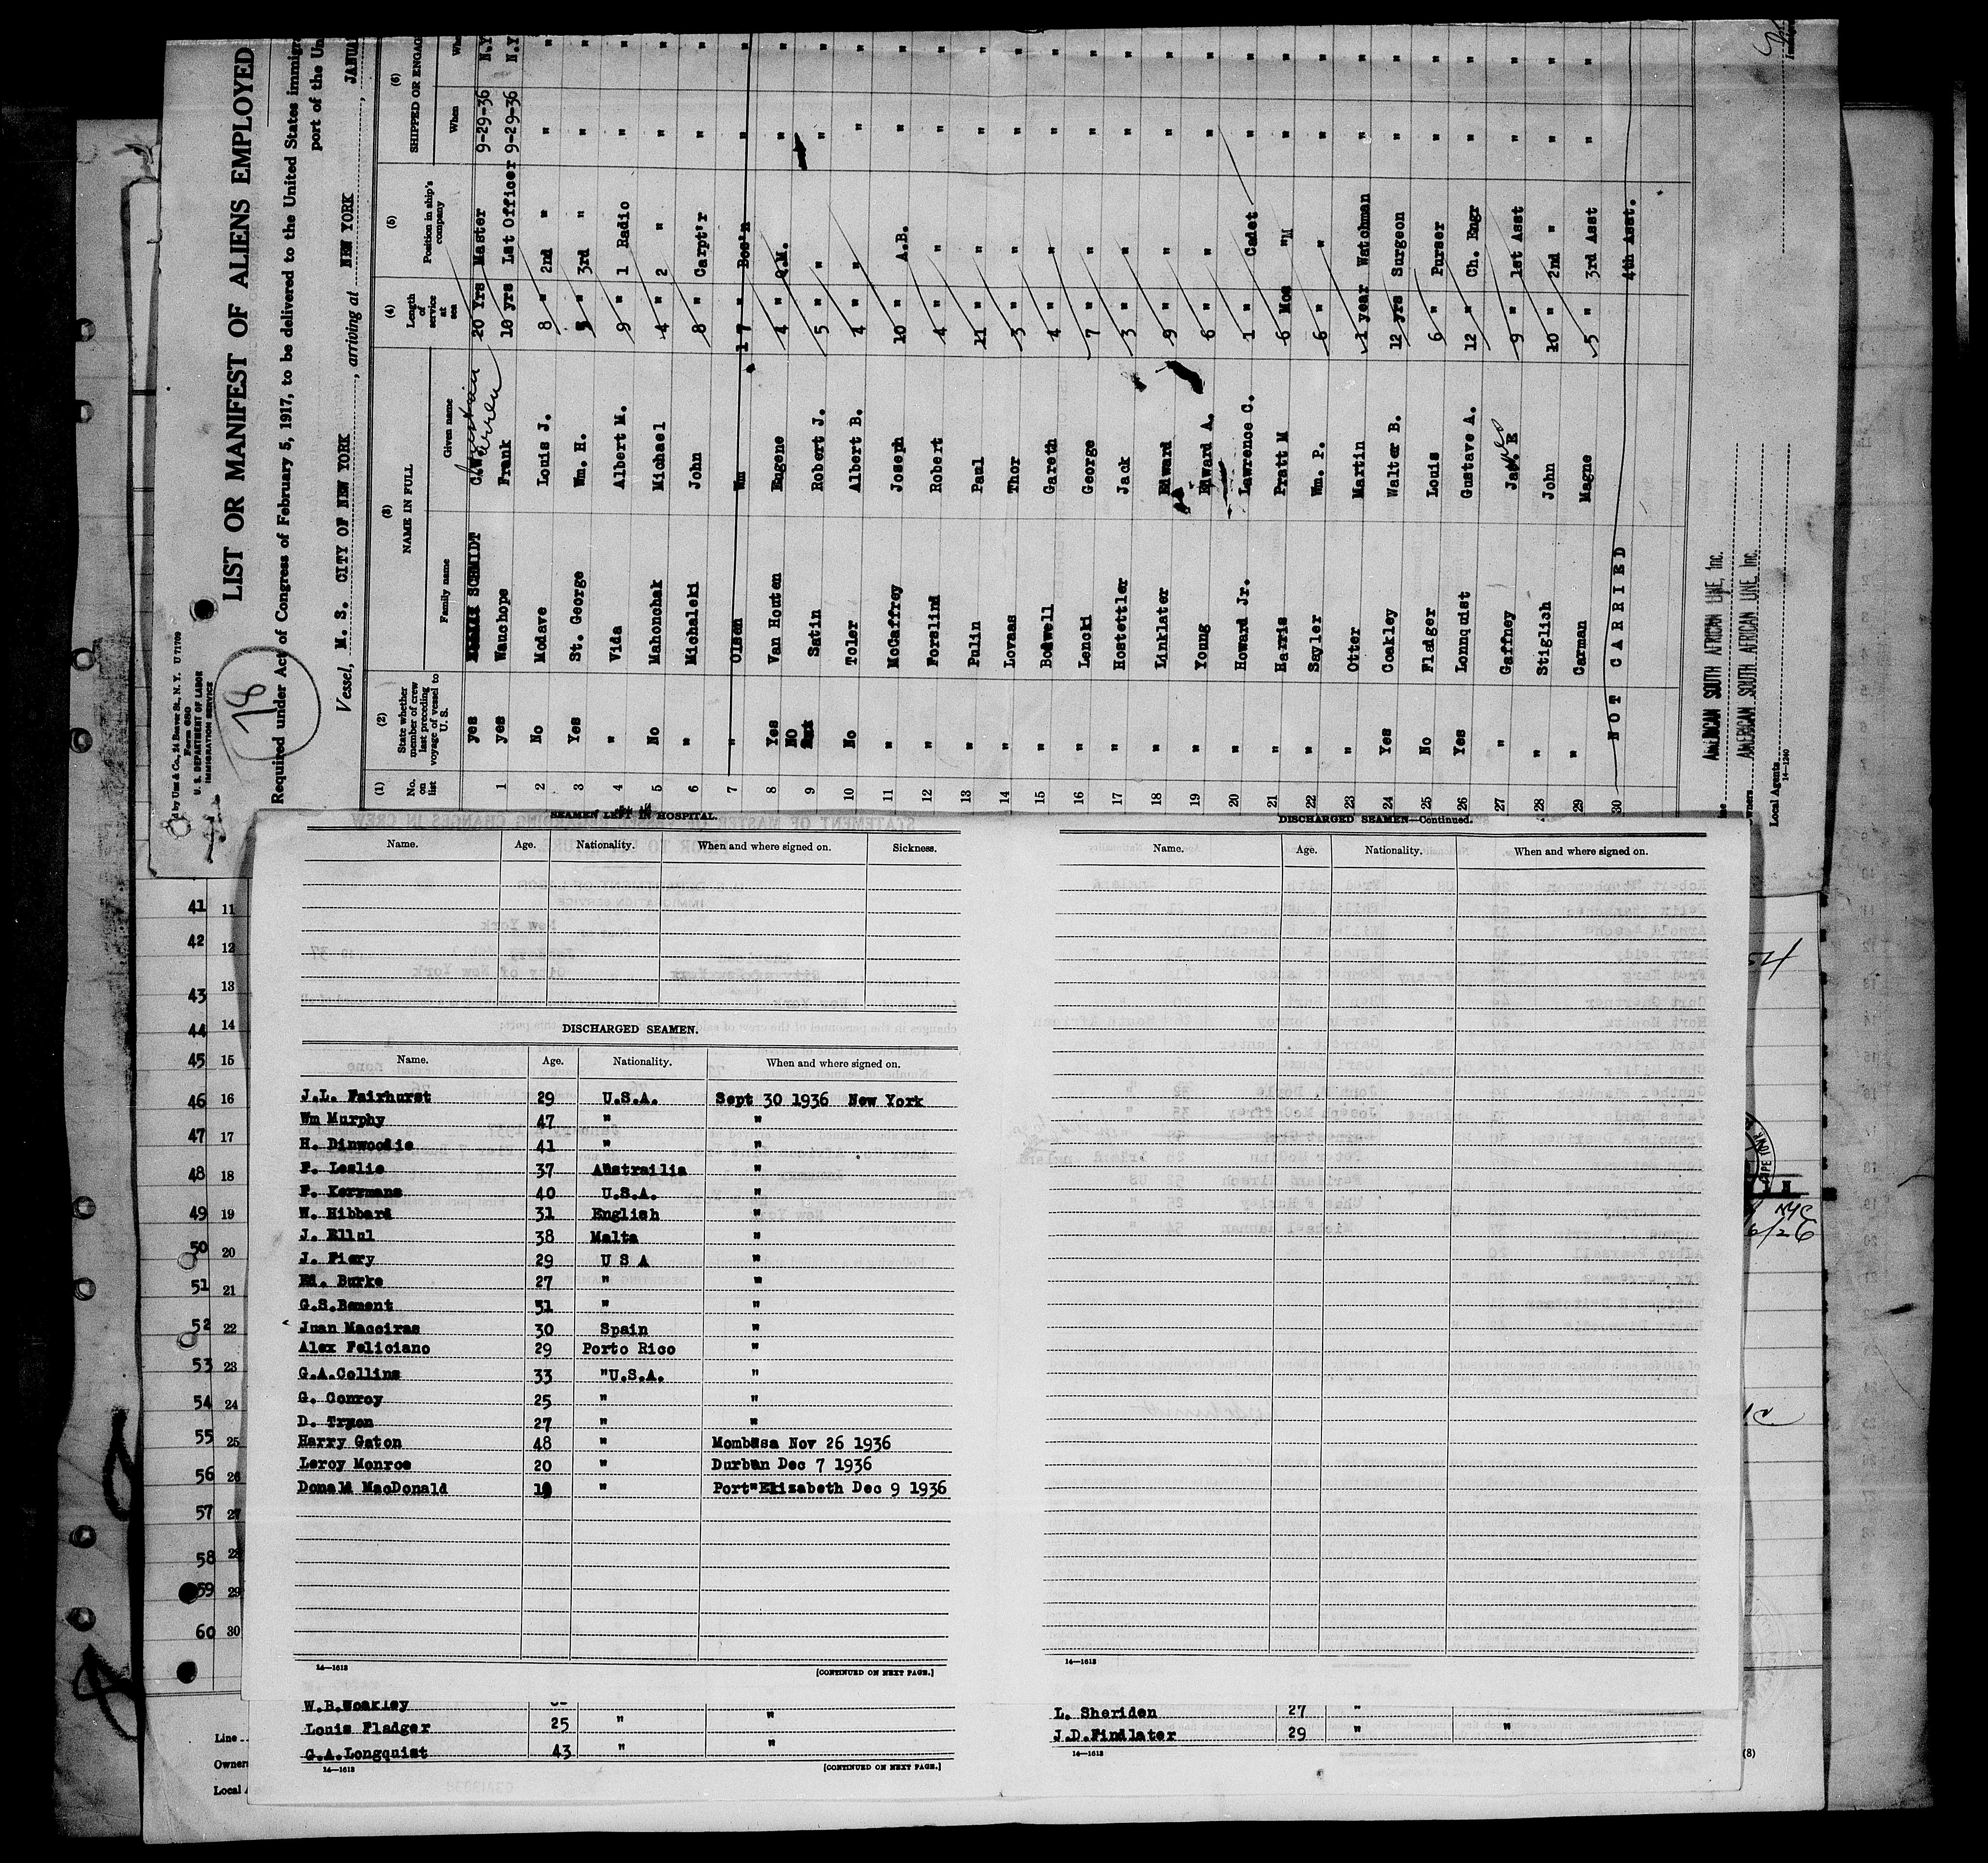 d by Unz & Co., 24 Beaver St., N. Y. U 71709
Form 680
U. S. DEPARTMENT OF LABOR
IMMIGRATION SERVICE
LIST OR MANIFEST OF ALIENS EMPLOYED
Required under Act of Congress of February 5, 1917, to be delivered to the United States immigr
port of the Un
Vessel, M. S. CITY OF NEW YORK, arriving at NEW YORK, JANUA
(1) (2) (3) (4) (5) (6)
No. on list State whether member of crew last preceding voyage of vessel to U. S. NAME IN FULL Length of service at sea Position in ship's company SHIPPED OR ENGAG
Family name Given name When Whe
yes SCHMIDT C.W. 20 Yrs Master 9-29-36 N.Y
1 yes Wauchope Frank 10 yrs 1st Officer 9-29-36 N.Y
2 No Modave Louis J. 8 " 2nd " " "
3 Yes St. George Wm. H. " 3rd " " "
4 " Vida Albert M. 9 " 1 Radio " "
5 No Mahonchak Michael 4 " 2 " " "
6 " Michaleki John 8 " Carpt'r " "
7 " Olsen Wm 17 " Bos'n " "
8 Yes Van Houten Eugene 4 " Q.M. " "
9 NO Satin Robert J. 5 " " " "
10 No Toler Albert B. 4 " " " "
11 " McCaffrey Joseph 10 " A.B. " "
12 " Forslind Robert 4 " " " "
13 " Pulin Paul 11 " " " "
14 " Lovaas Thor 3 " " " "
15 " Bodwell Gareth 4 " " " "
16 " Lencki George 7 " " " "
17 " Hostettler Jack 3 " " " "
18 " Linklater Edward 9 " " " "
19 " Young Edward A. 6 " " " "
20 " Howard Jr. Lawrence C. 1 " Cadet " "
21 " Harris Pratt M 6 Mos "M " "
22 " Sayler Wm. P. 6 " " " "
23 " Otter Martin 1 year Watchman " "
24 Yes Coakley Walter B. 12 yrs Surgeon " "
25 No Fladger Louis 6 " Purser " "
26 Yes Lonnquist Gustave A. 12 " Ch. Engr " "
27 " Gaffney Jas. E 9 " 1st Asst " "
28 " Stiglich John 10 " 2nd " " "
29 " Carman Magne 5 " 3rd Asst " "
30 NOT CARRIED 4th Asst.
AMERICAN SOUTH AFRICAN LINE, Inc.
AMERICAN SOUTH AFRICAN LINE, Inc.
Local Agents
14-1240
SEAMEN LEFT IN HOSPITAL.
Name. Age. Nationality. When and where signed on. Sickness.
DISCHARGED SEAMEN.
Name. Age. Nationality. When and where signed on.
J.L. Fairhurst 29 U.S.A. Sept 30 1936 New York
Wm Murphy 47 " "
H. Dinwoodie 41 " "
F. Leslie 37 Austrailia "
F. Kerrmans 40 U.S.A. "
W. Hibbard 31 English "
J. Ellul 38 Malta "
J. Fiery 29 U S A "
Ed. Burke 27 " "
G.S.Bement 31 " "
Juan Macciras 30 Spain "
Alex Feliciano 29 Porto Rico "
G.A.Collins 33 "U.S.A. "
G. Conroy 25 " "
D. Tryon 27 " "
Harry Gaton 48 " Mombasa Nov 26 1936
Leroy Monroe 20 " Durban Dec 7 1936
Donald MacDonald " Port"Elizabeth Dec 9 1936
14—1613 [CONTINUED ON NEXT PAGE.]
W.B.Woakley " "
Louis Fladger 25 " "
G.A.Longquist 43 " "
14—1613 [CONTINUED ON NEXT PAGE.]
DISCHARGED SEAMEN—Continued.
Name. Age. Nationality. When and where signed on.
14—1613
L. Sheriden 27 "
J.D.Findlater 29 " "
14—1613
41 11
42 12
43 13
44 14
45 15
46 16
47 17
48 18
49 19
50 20
51 21
52 22
53 23
54 24
55 25
56 26
57 27
58 28
59 29
60 30
Line
Owner
Local A
(8)